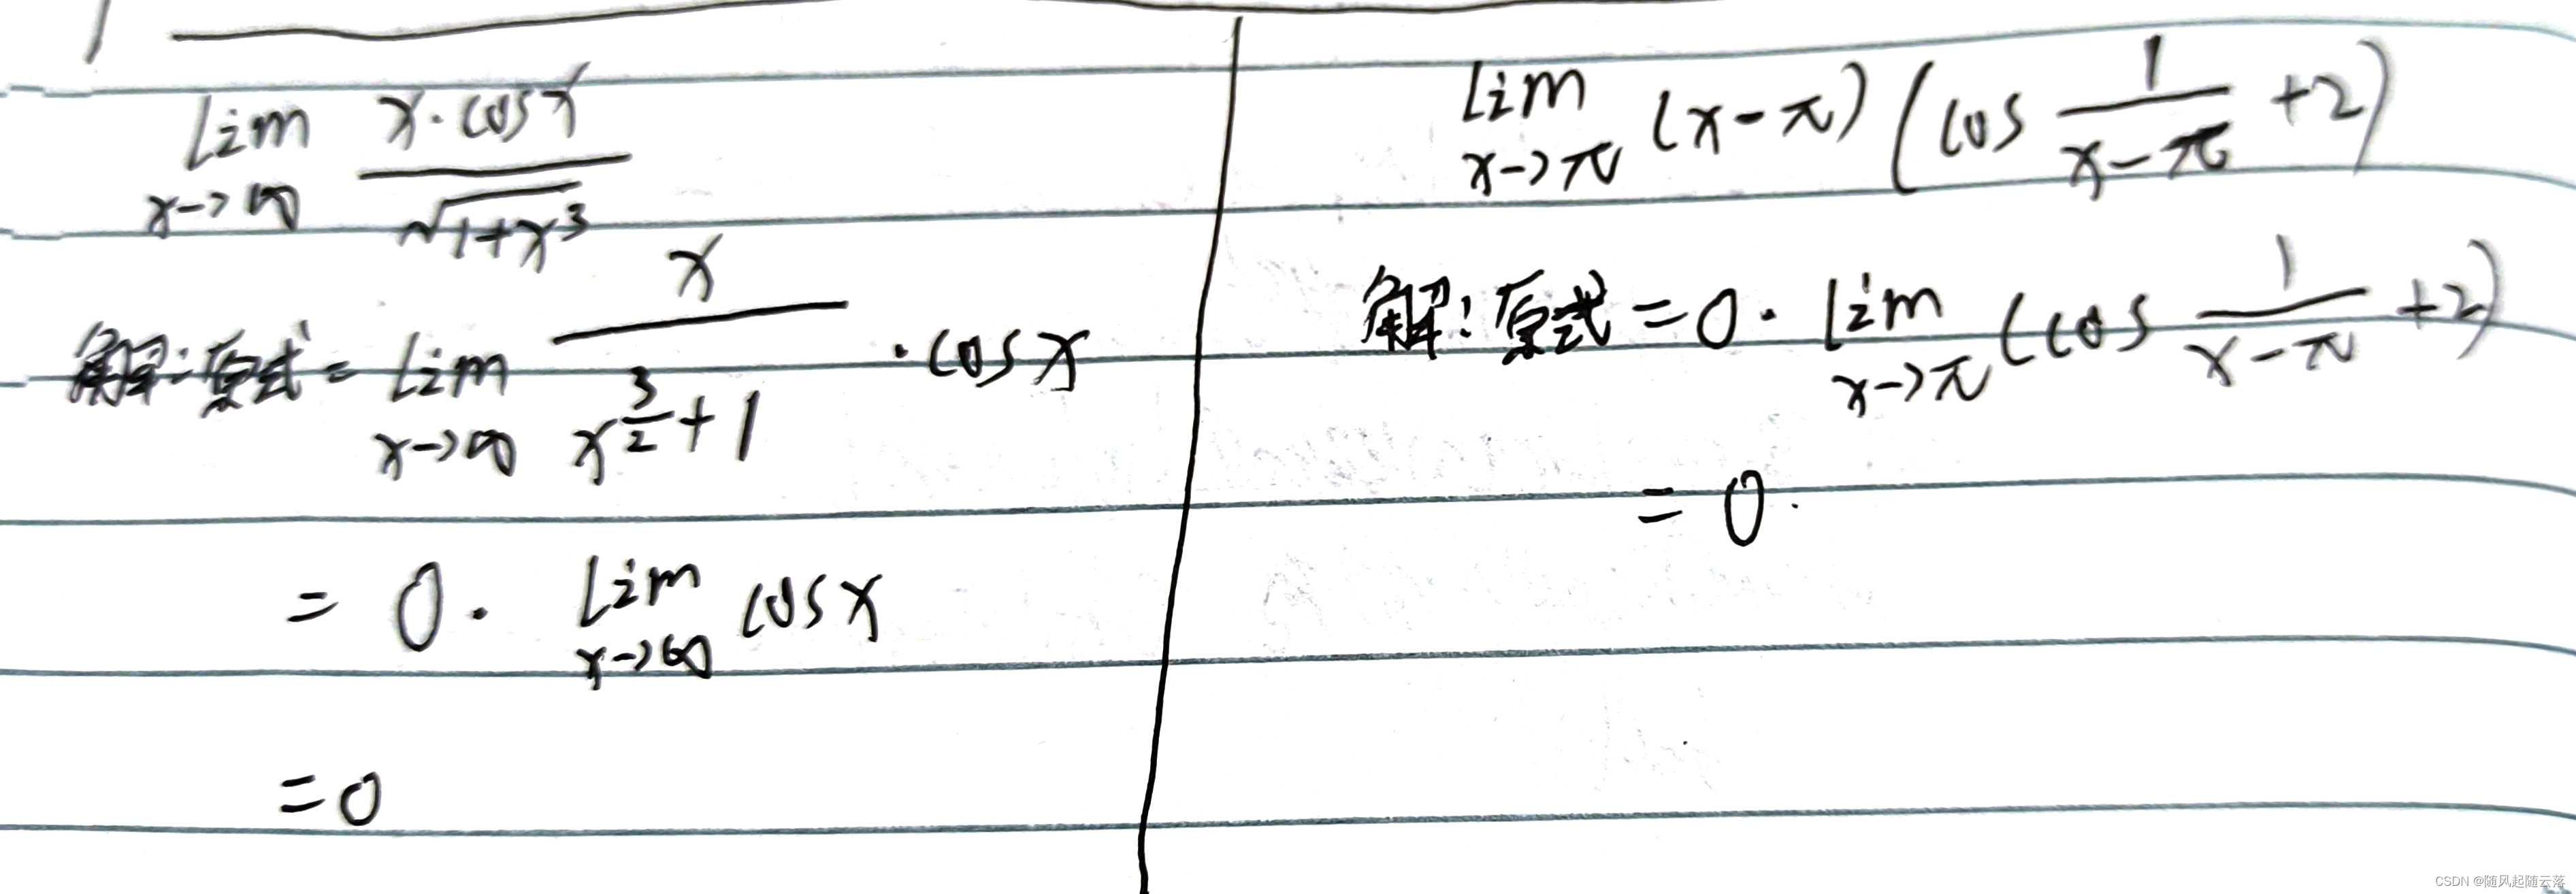 lim x→∞ x·cosx / √1+x³
解:原式 = lim x→∞ x / x^(3/2)+1 ·cosx
= 0· lim x→∞ cosx
=0
lim x→π (x-π)(cos 1/(x-π) +2)
解:原式=0·lim x→π (cos 1/(x-π) +2)
=0.
CSDN @随风起随云落